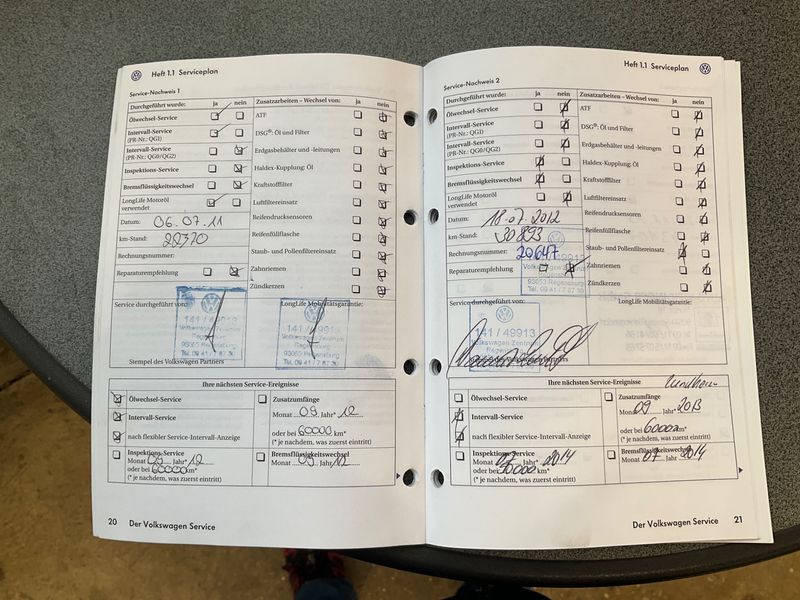 Heft 1.1 Serviceplan
Service-Nachweis 1
Durchgeführt wurde: ja nein
Ölwechsel-Service
Intervall-Service
(PR-Nr.: QGI)
Intervall-Service
(PR-Nr.: QG0/QG2)
Inspektions-Service
Bremsflüssigkeitswechsel
LongLife Motoröl
verwendet
Datum: 06.07.11
km-Stand:
Rechnungsnummer:
Reparaturempfehlung
Zusatzarbeiten – Wechsel von: ja nein
ATF
DSG®: Öl und Filter
Erdgasbehälter und -leitungen
Haldex-Kupplung: Öl
Kraftstofffilter
Luftfiltereinsatz
Reifendrucksensoren
Reifenfüllflasche
Staub- und Pollenfiltereinsatz
Zahnriemen
Zündkerzen
Service durchgeführt von:
LongLife Mobilitätsgarantie:
141 / 49913
Volkswagen Zentrum
93053 Regensburg
Tel. 09 41 / 7 87 30
141 / 49913
Volkswagen Zentrum
93053 Regensburg
Tel. 09 41 / 7 87 30
Stempel des Volkswagen Partners
Ihre nächsten Service-Ereignisse
Ölwechsel-Service
Intervall-Service
nach flexibler Service-Intervall-Anzeige
Zusatzumfänge
Monat 09 Jahr* 12
oder bei 60000 km*
(* je nachdem, was zuerst eintritt)
Inspektions-Service
Monat 09 Jahr* 12
oder bei 60000 km*
(* je nachdem, was zuerst eintritt)
Bremsflüssigkeitswechsel
Monat 09 Jahr 12
20 Der Volkswagen Service
Heft 1.1 Serviceplan
Service-Nachweis 2
Durchgeführt wurde: ja nein
Ölwechsel-Service
Intervall-Service
(PR-Nr.: QGI)
Intervall-Service
(PR-Nr.: QG0/QG2)
Inspektions-Service
Bremsflüssigkeitswechsel
LongLife Motoröl
verwendet
Datum: 18.07.2012
km-Stand: 30893
Rechnungsnummer: 20647
Reparaturempfehlung
Zusatzarbeiten – Wechsel von: ja nein
ATF
DSG®: Öl und Filter
Erdgasbehälter und -leitungen
Haldex-Kupplung: Öl
Kraftstofffilter
Luftfiltereinsatz
Reifendrucksensoren
Reifenfüllflasche
Staub- und Pollenfiltereinsatz
Zahnriemen
Zündkerzen
49913
Volkswagen Zentrum
93053 Regensburg
Tel. 09 41 / 7 87 30
Service durchgeführt von:
LongLife Mobilitätsgarantie:
141 / 49913
Volkswagen Zentrum
Ihre nächsten Service-Ereignisse
Ölwechsel-Service
Intervall-Service
nach flexibler Service-Intervall-Anzeige
Zusatzumfänge
Monat 09 Jahr* 2013
oder bei 60000 km*
(* je nachdem, was zuerst eintritt)
Inspektions-Service
Monat 07 Jahr* 2014
oder bei 90000 km*
(* je nachdem, was zuerst eintritt)
Bremsflüssigkeitswechsel
Monat 07 Jahr 2014
Der Volkswagen Service 21